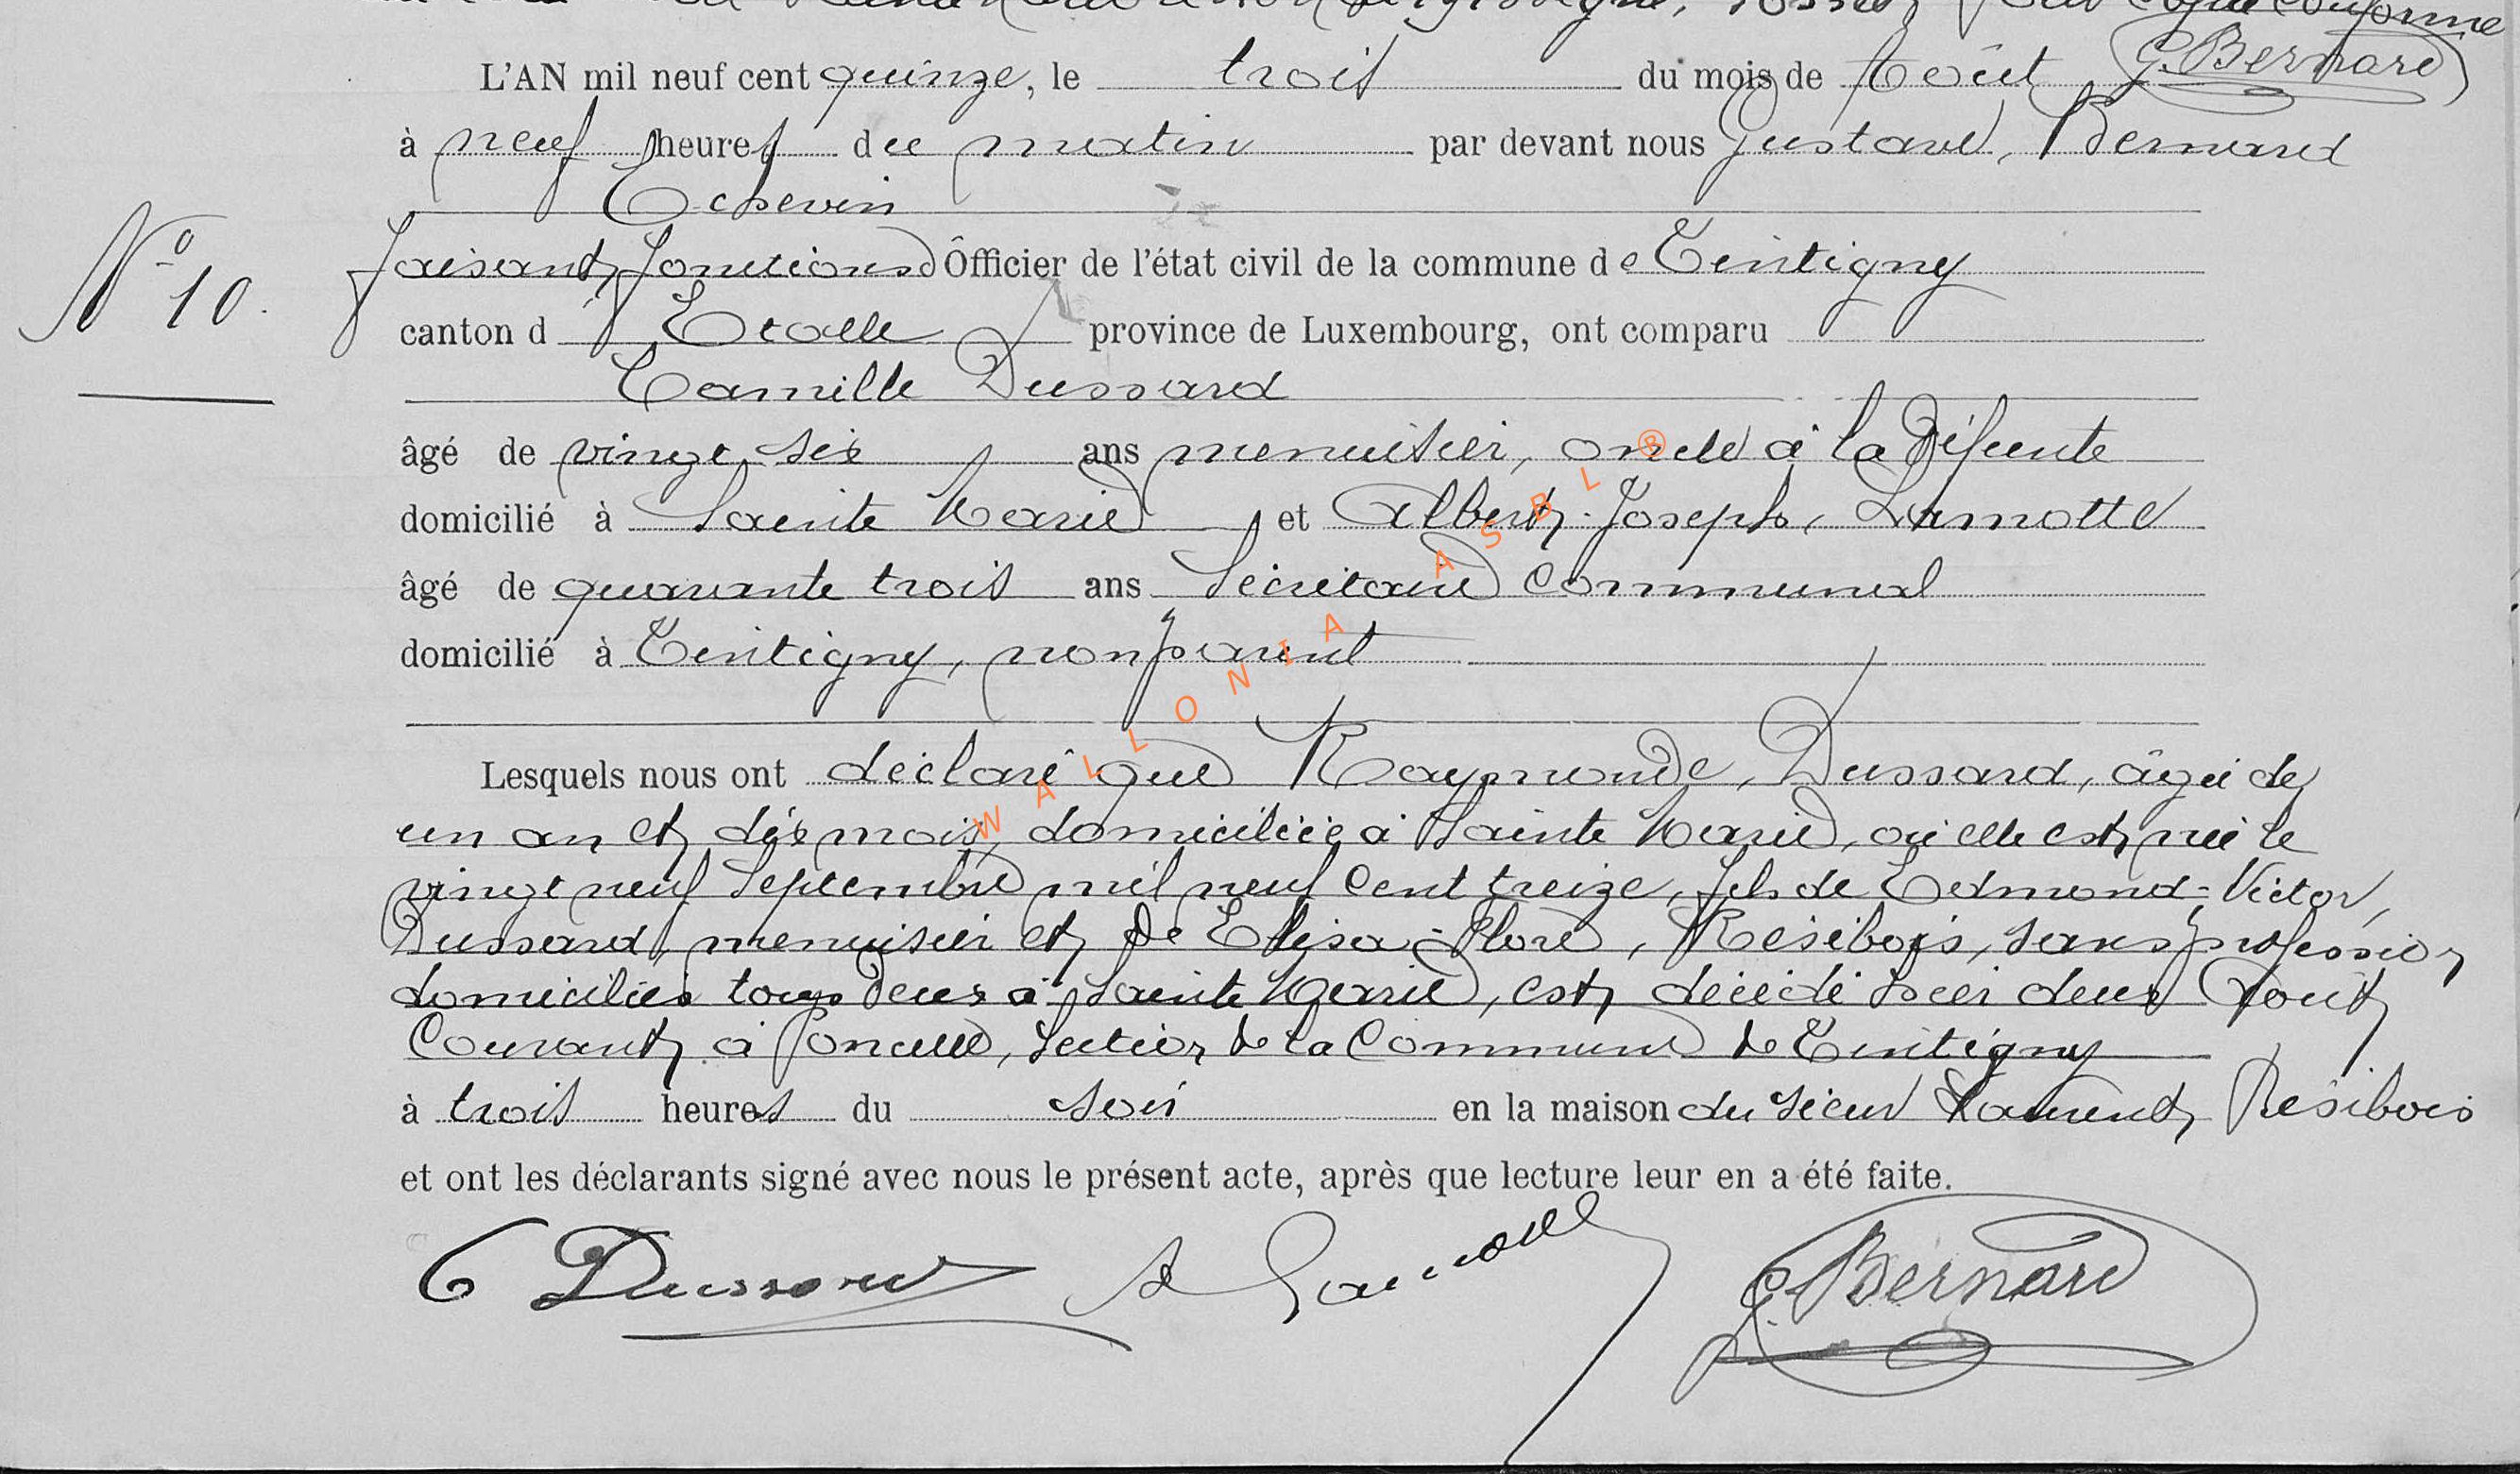 L'AN mil neuf cent quinze, le trois du mois de Août G. Bernard
à neuf heures du matin par devant nous Gustave, Bernard
Echevin
N° 10.
faisant fonctions d'Officier de l'état civil de la commune de Tintigny
canton d' Etalle province de Luxembourg, ont comparu
Camille Dussard
âgé de vingt six ans menuisier, oncle à la Défunte
domicilié à Sainte Marie et Albert-Joseph, Lamotte
âgé de quarante trois ans Secrétaire Communal
domicilié à Tintigny, non parent
Lesquels nous ont déclaré que Raymonde, Dussard, âgée de
un an et dix mois, domiciliée à Sainte Marie, où elle est née le
vingt neuf Septembre mil neuf cent treize, fils de Edmond-Victor,
Dussard, menuisier et de Elisa-Flore, Résibois, sans profession
domiciliés tous deux à Sainte Marie, est décédé hier deux Août
Courant à Poncelle, Section de la Commune de Tintigny
à trois heures du soir en la maison du sieur Laurent, Résibois
et ont les déclarants signé avec nous le présent acte, après que lecture leur en a été faite.
C Dussard A Lamotte G. Bernard
WALLONIA ASBL ®